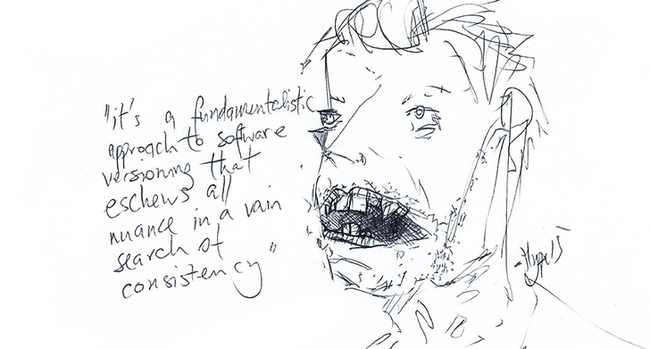 "it's a fundamentalistic
approach to software
versioning that
eschews all
nuance in a vain
search of
consistency"